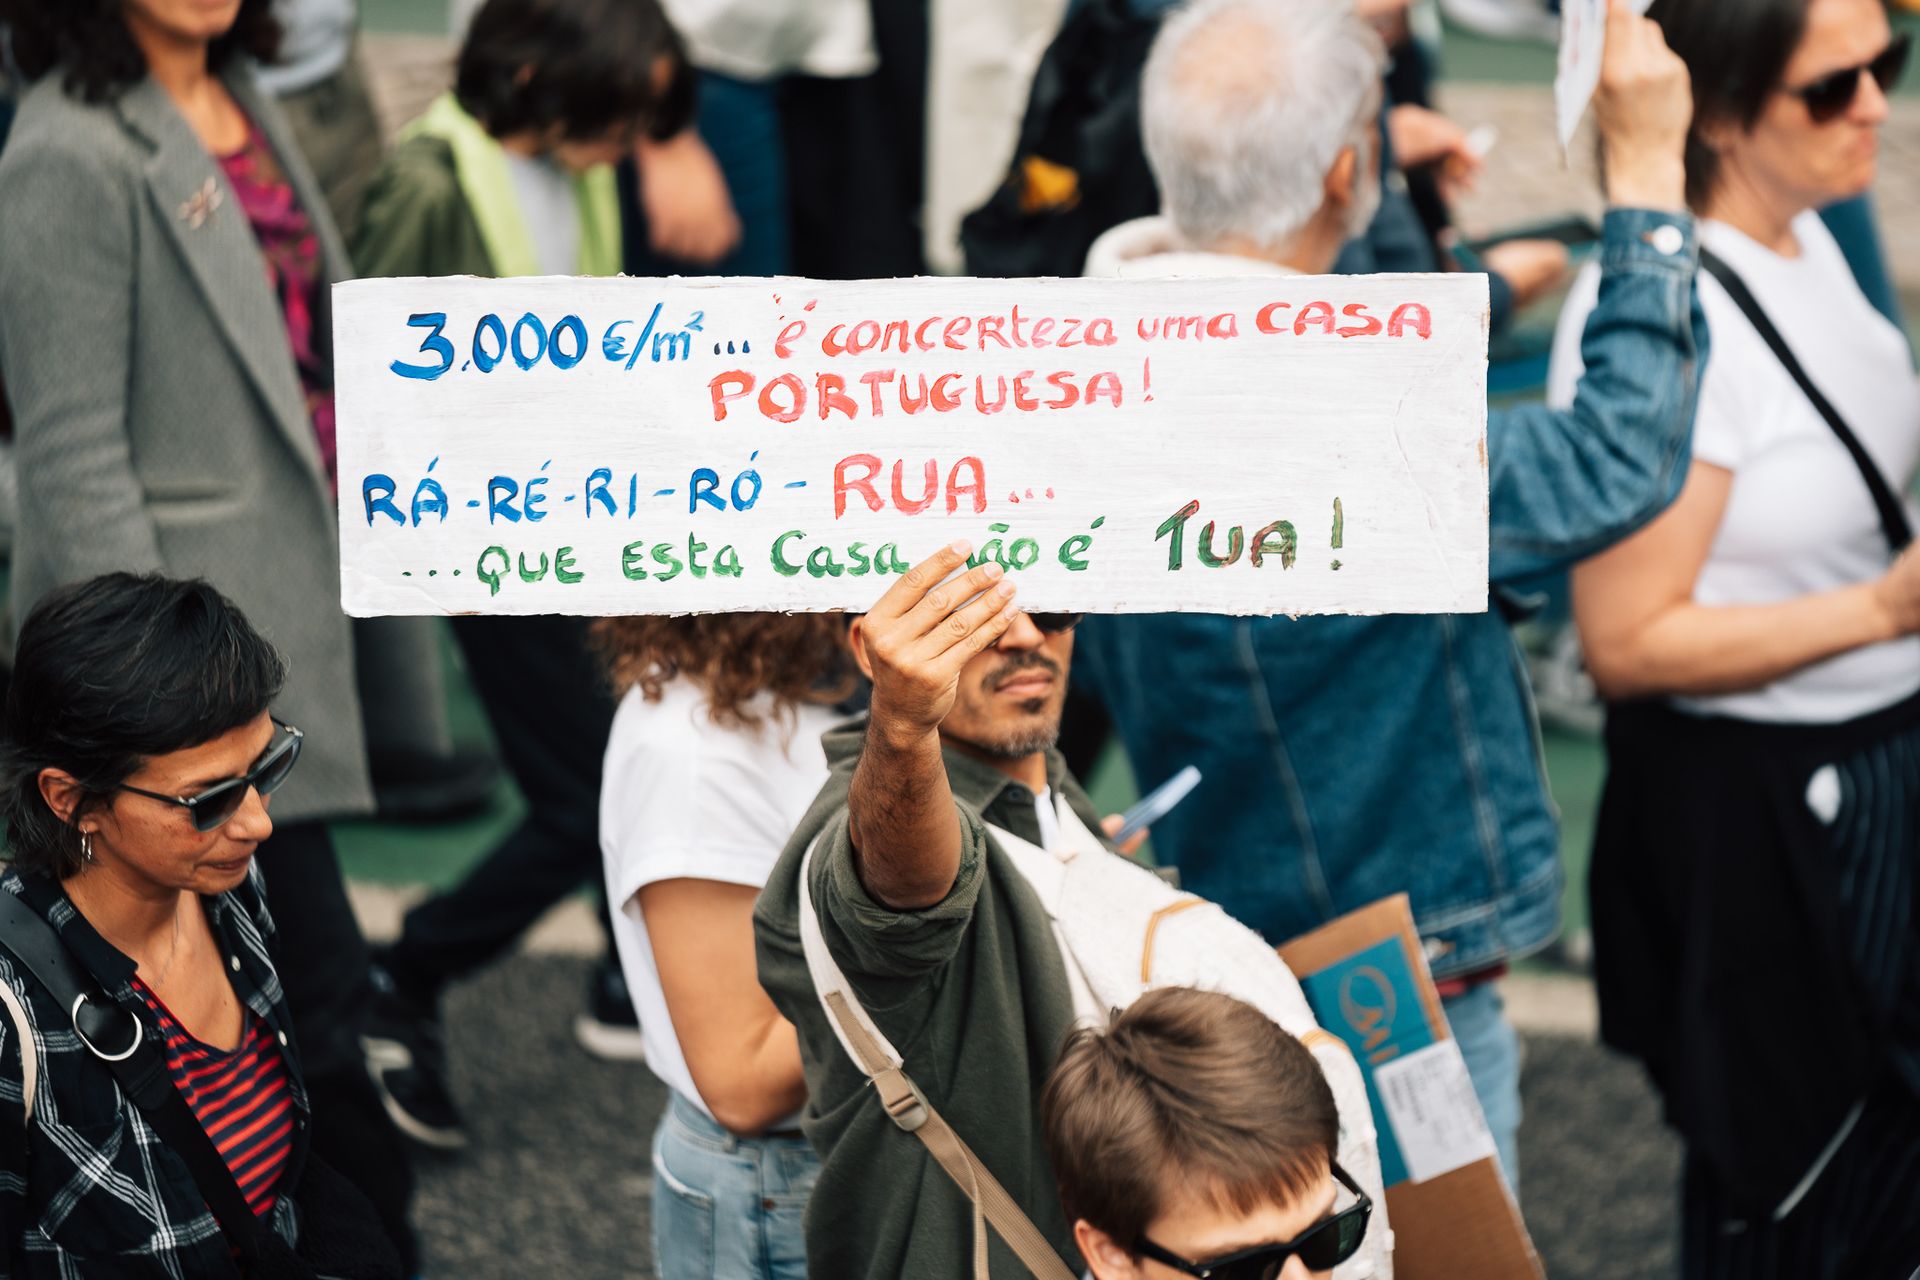 3.000 €/m² ... é concerteza uma CASA
PORTUGUESA!
RÁ-RÉ-RI-RÓ-RUA...
...QUE Esta Casa não é TUA!